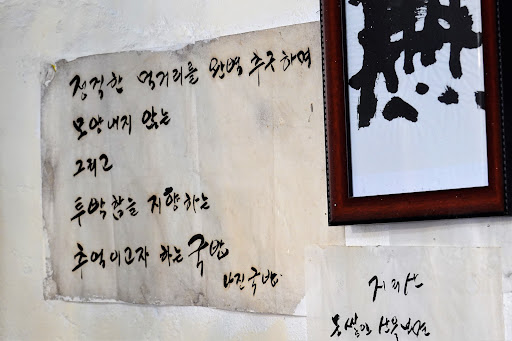 정직한 먹거리를 완벽 추구하며
모양내지 않는
그리고
투박함을 지향하는
추억이고자 하는 국밥
나진국밥
지리산